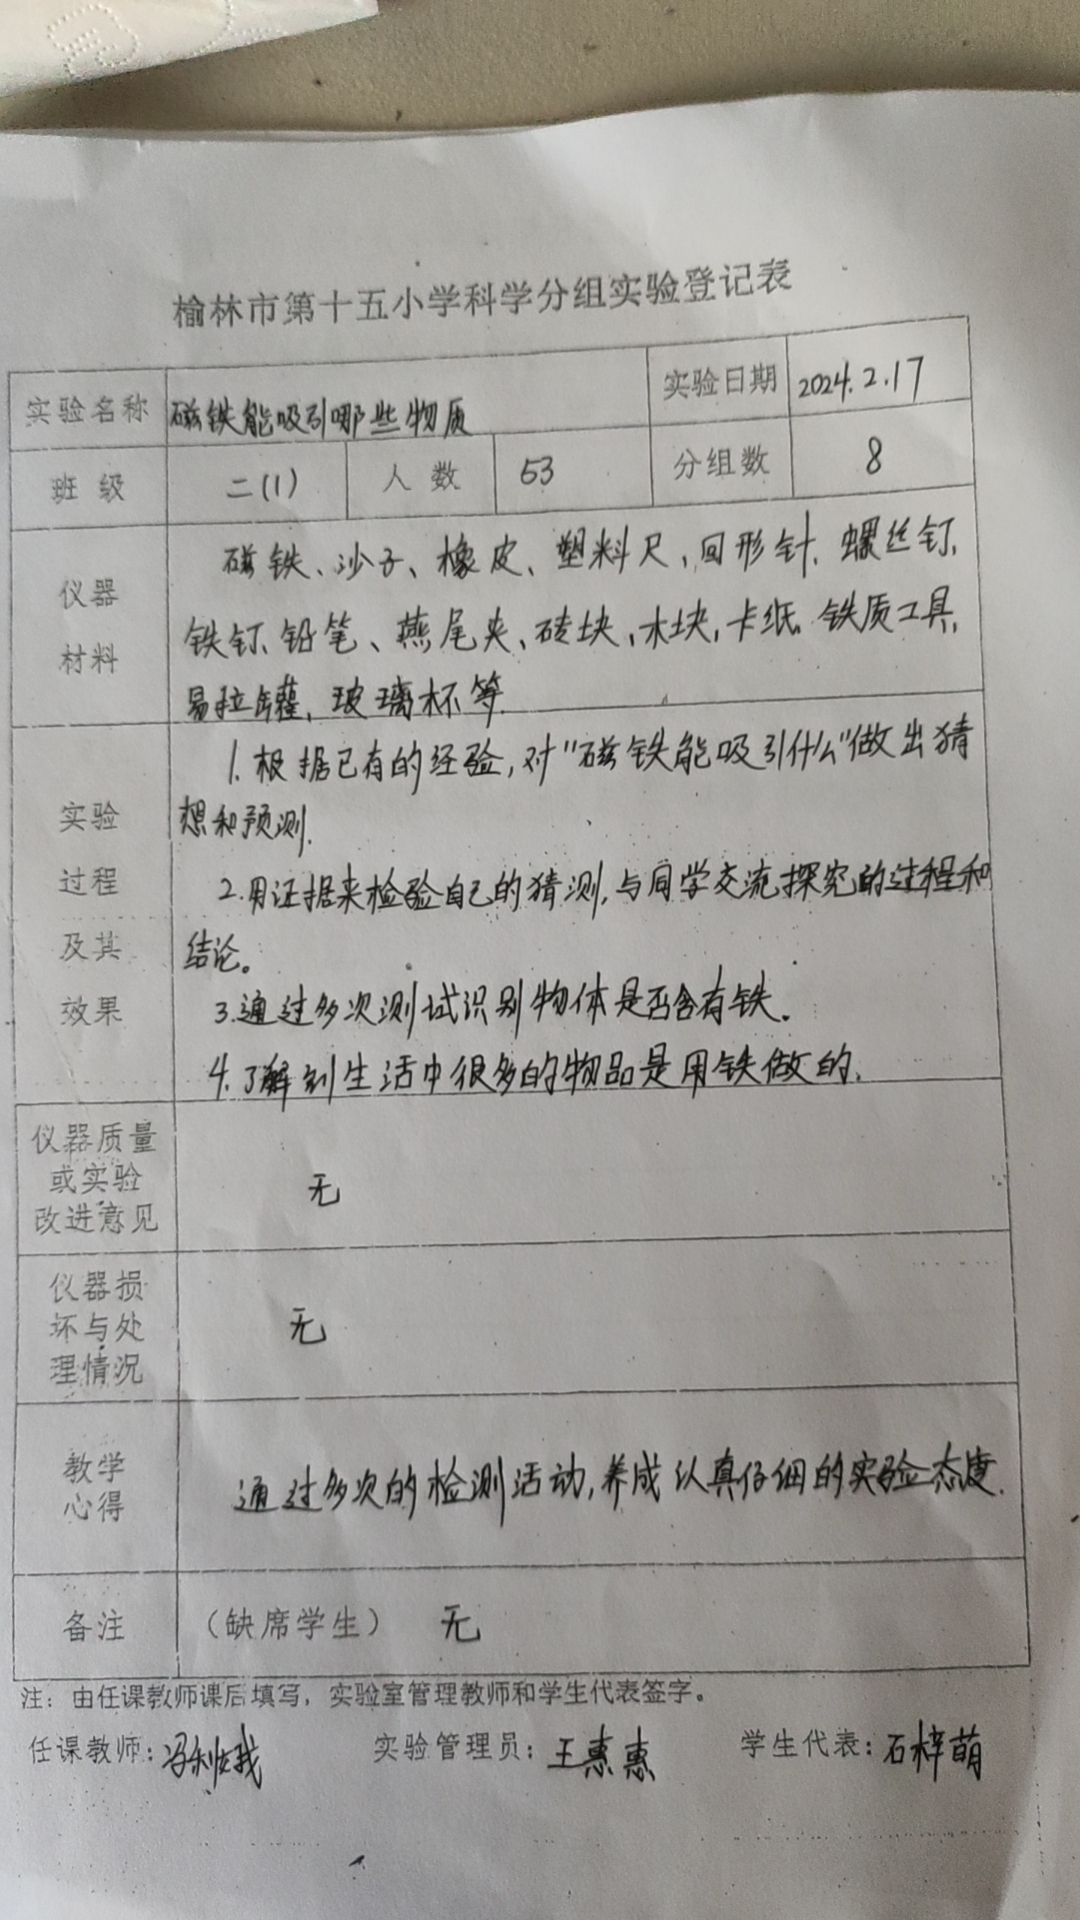 榆林市第十五小学科学分组实验登记表
实验名称 磁铁能吸引哪些物质 实验日期 2024.2.17
班 级 二(1) 人 数 53 分组数 8
仪器
材料
磁铁、沙子、橡皮、塑料尺、回形针、螺丝钉、
铁钉、铅笔、燕尾夹、砖块、木块、卡纸、铁质工具、
易拉罐、玻璃杯等.
实验
过程
及其
效果
1.根据已有的经验,对"磁铁能吸引什么"做出猜
想和预测.
2.用证据来检验自己的猜测,与同学交流探究的过程和
结论。
3.通过多次测试识别物体是否含有铁.
4.了解到生活中很多的物品是用铁做的.
仪器质量
或实验
改进意见
无
仪器损
坏与处
理情况
无
教学
心得
通过多次的检测活动,养成认真仔细的实验态度.
备注 (缺席学生) 无
注：由任课教师课后填写，实验室管理教师和学生代表签字。
任课教师: 冯 实验管理员: 王惠惠 学生代表: 石梓萌